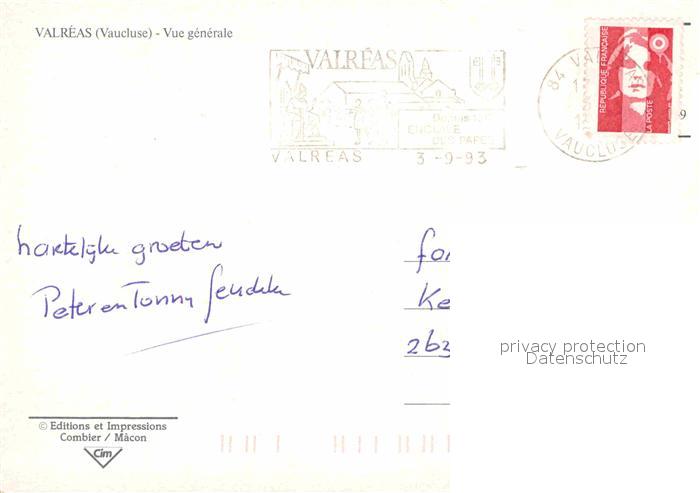 VALRÉAS (Vaucluse) - Vue générale
VALRÉAS
ENCLAVE
DES PAPES
VALREAS 3-9-93
84 VA
VAUCLUSE
RÉPUBLIQUE FRANÇAISE
LA POSTE
9
hartelijke groeten
Peter en Tonny
for
Ke
263
privacy protection
Datenschutz
© Editions et Impressions
Combier / Mâcon
Cim